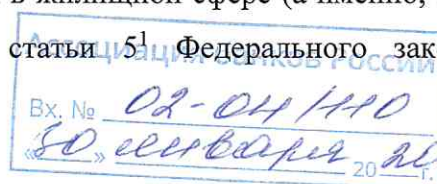 в жилищной сфере (а именно,
статьи 5¹ Федерального зак
Ассоциация банков России
Вх. № 02-04/110
«30» января 2020 г.